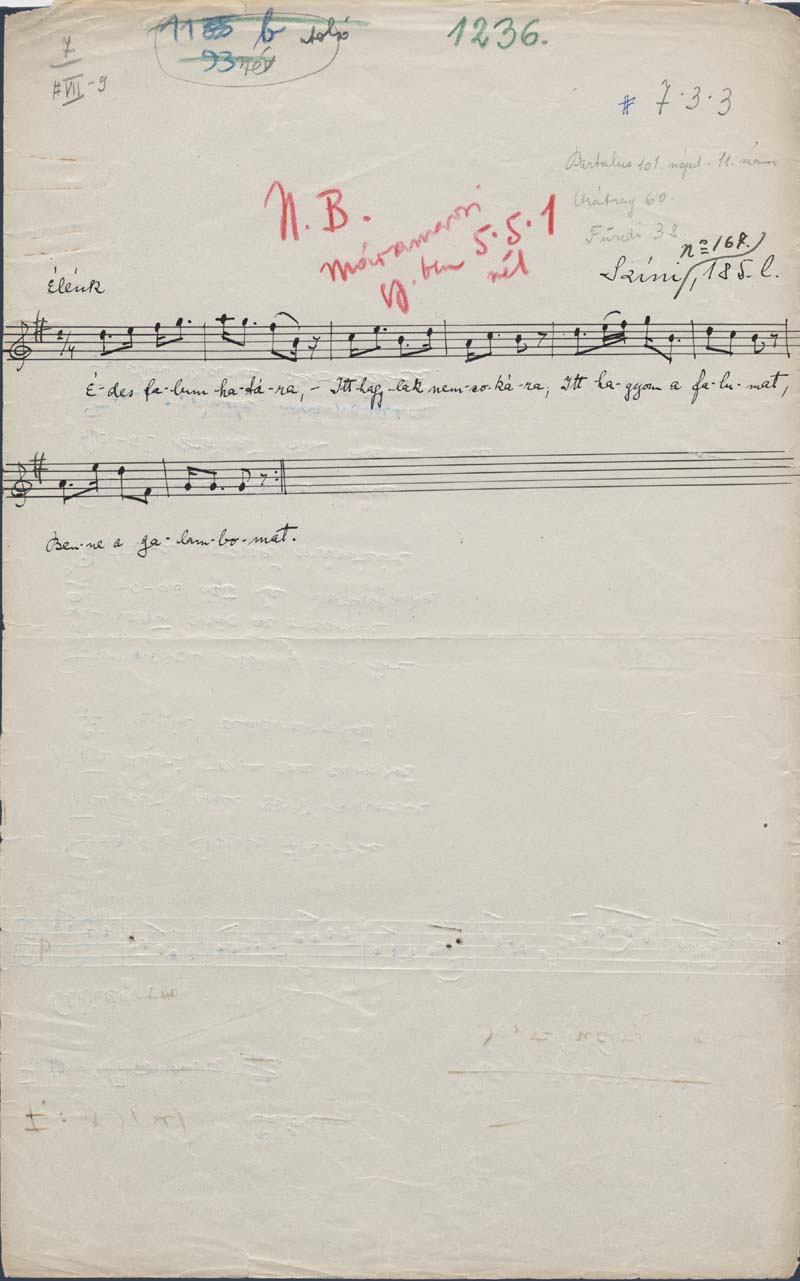 1155 b
1236.
7
#VII-9
93
# 7·3·3
Bartalus 101. népd. 11. szám
Mátray 60.
Füredi 38
N. B.
Máramarosi
gy. ben 5·5·1
nél
nº 168.
Színi, 185. l.
Élénk
2/4
É-des fa-lum ha-tá-ra, – Itt hagy-lak nem-so-ká-ra; Itt ha-gyom a fa-lu-mat,
Ben-ne a ga-lam-bo-mat.